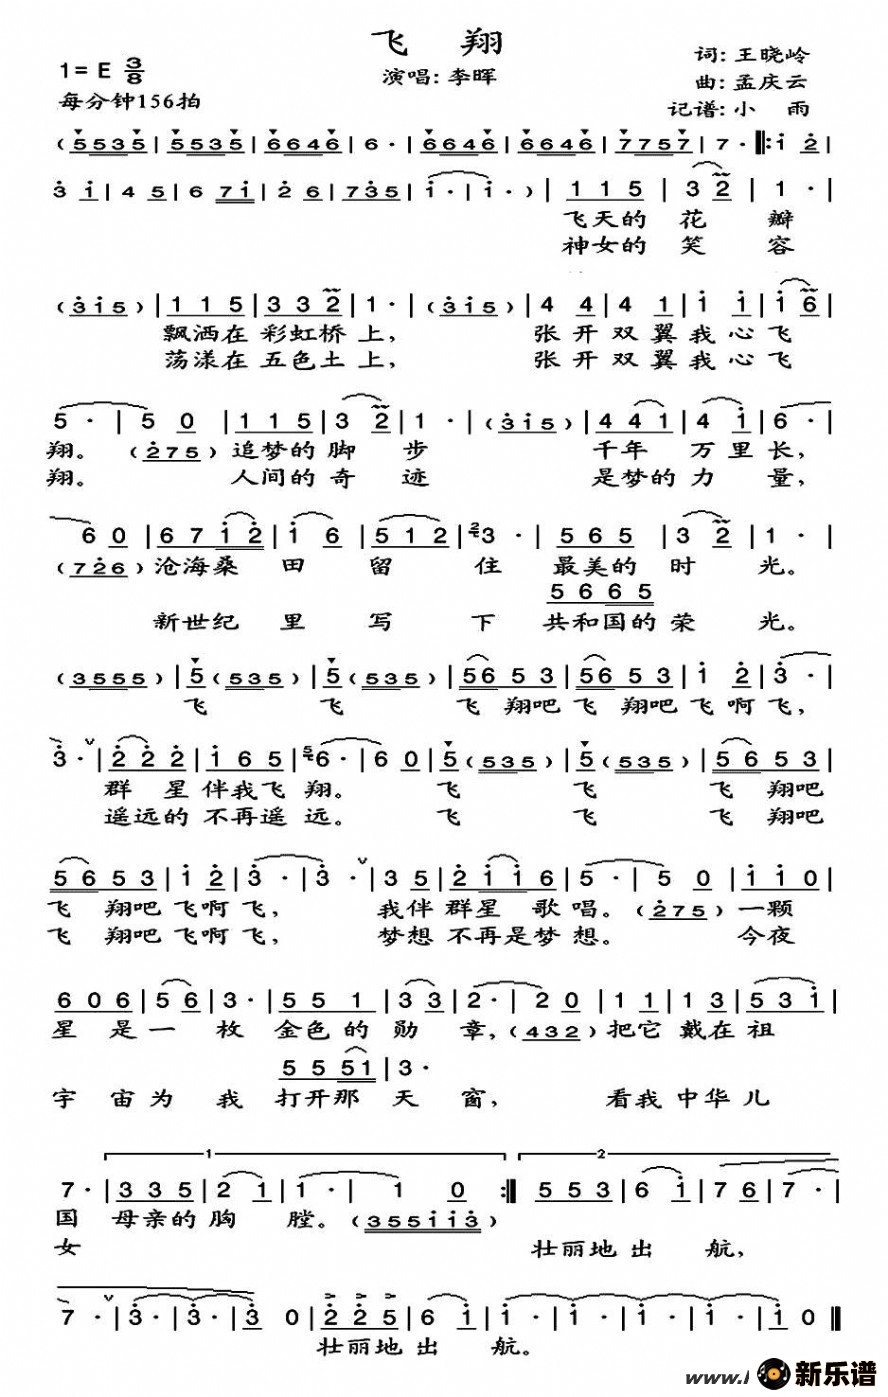 飞 翔
1=E 3/8
每分钟156拍
演唱:李晖
词:王晓岭
曲:孟庆云
记谱:小 雨
(5535|5535|6646|6·|6646|6646|7757|7·‖:i 2|
3 i|4 5|6 7i|2 6|735|i·|i·)|1 1 5|3 2|1·|
飞天的 花 瓣
神女的 笑 容
(3i5)|1 1 5|3 3 2|1·|(3i5)|4 4|4 1|i i|i 6|
飘洒在 彩虹桥 上, 张 开 双 翼 我 心 飞
荡漾在 五色土 上, 张 开 双 翼 我 心 飞
5·|5 0|1 1 5|3 2|1·|(3i5)|4 4 1|4 i|6·|
翔。(275)追梦的 脚 步 千年 万 里 长,
翔。 人间的 奇 迹 是梦的 力 量,
6 0|6 7 i 2|i 6|5 1 2|2 3·|5 6 5|3 2|1·|
(726)沧海桑 田 留 住 最美的 时 光。
5 6 6 5
新世纪 里 写 下 共和国的 荣 光。
(3555)|5(535)|5(535)|56 5 3|56 5 3|i 2|3·|
飞 飞 飞 翔吧 飞 翔吧 飞 啊 飞,
3·|2 2 2|i 6 5|5 6·|6 0|5(535)|5(535)|5 6 5 3|
群 星 伴我飞 翔。 飞 飞 飞 翔吧
遥远的 不再遥 远。 飞 飞 飞 翔吧
5 6 5 3|i 2|3·|3·|3 5|2 i i 6|5·|5 0|i i 0|
飞 翔吧 飞啊 飞, 我伴 群星 歌 唱。(275)一颗
飞 翔吧 飞啊 飞, 梦想 不再是梦 想。 今夜
6 0 6|5 6|3·|5 5 1|3 3|2·|2 0|1 1|1 3|5 3 i|
星 是 一 枚 金色的 勋 章,(432)把它 戴在 祖
5 5 51|3·
宇 宙为 我 打开那 天 窗, 看我 中华 儿
1 2
7·|3 3 5|2 1|1·|1 0:‖5 5 3|6 i|7 6|7·|
国 母亲的 胸 膛。(355ii3)
女 壮丽地 出 航,
7·|3·|3·|3 0|2 2 5|6 i|i·|i·|i·|i·|i 0‖
壮丽地 出 航。
www.
新乐谱